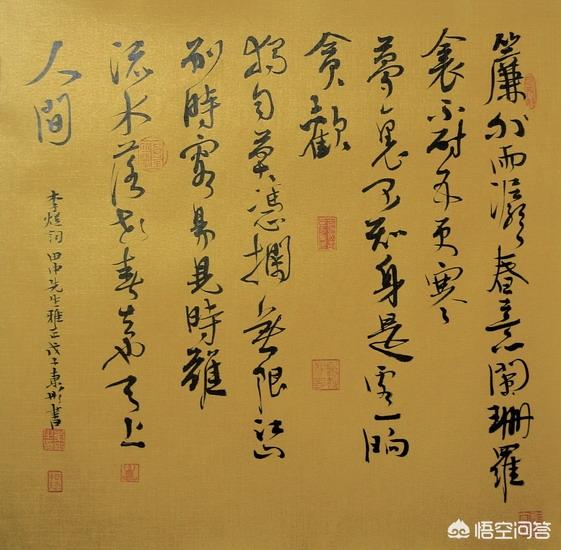 簾外雨潺潺春意闌珊羅
衾不耐五更寒
夢裏不知身是客一晌
貪歡
獨自莫憑欄無限江山
別時容易見時難
流水落花春去也天上
人間
李煜詞 田中先生雅正 戊子東彬書
悟空问答